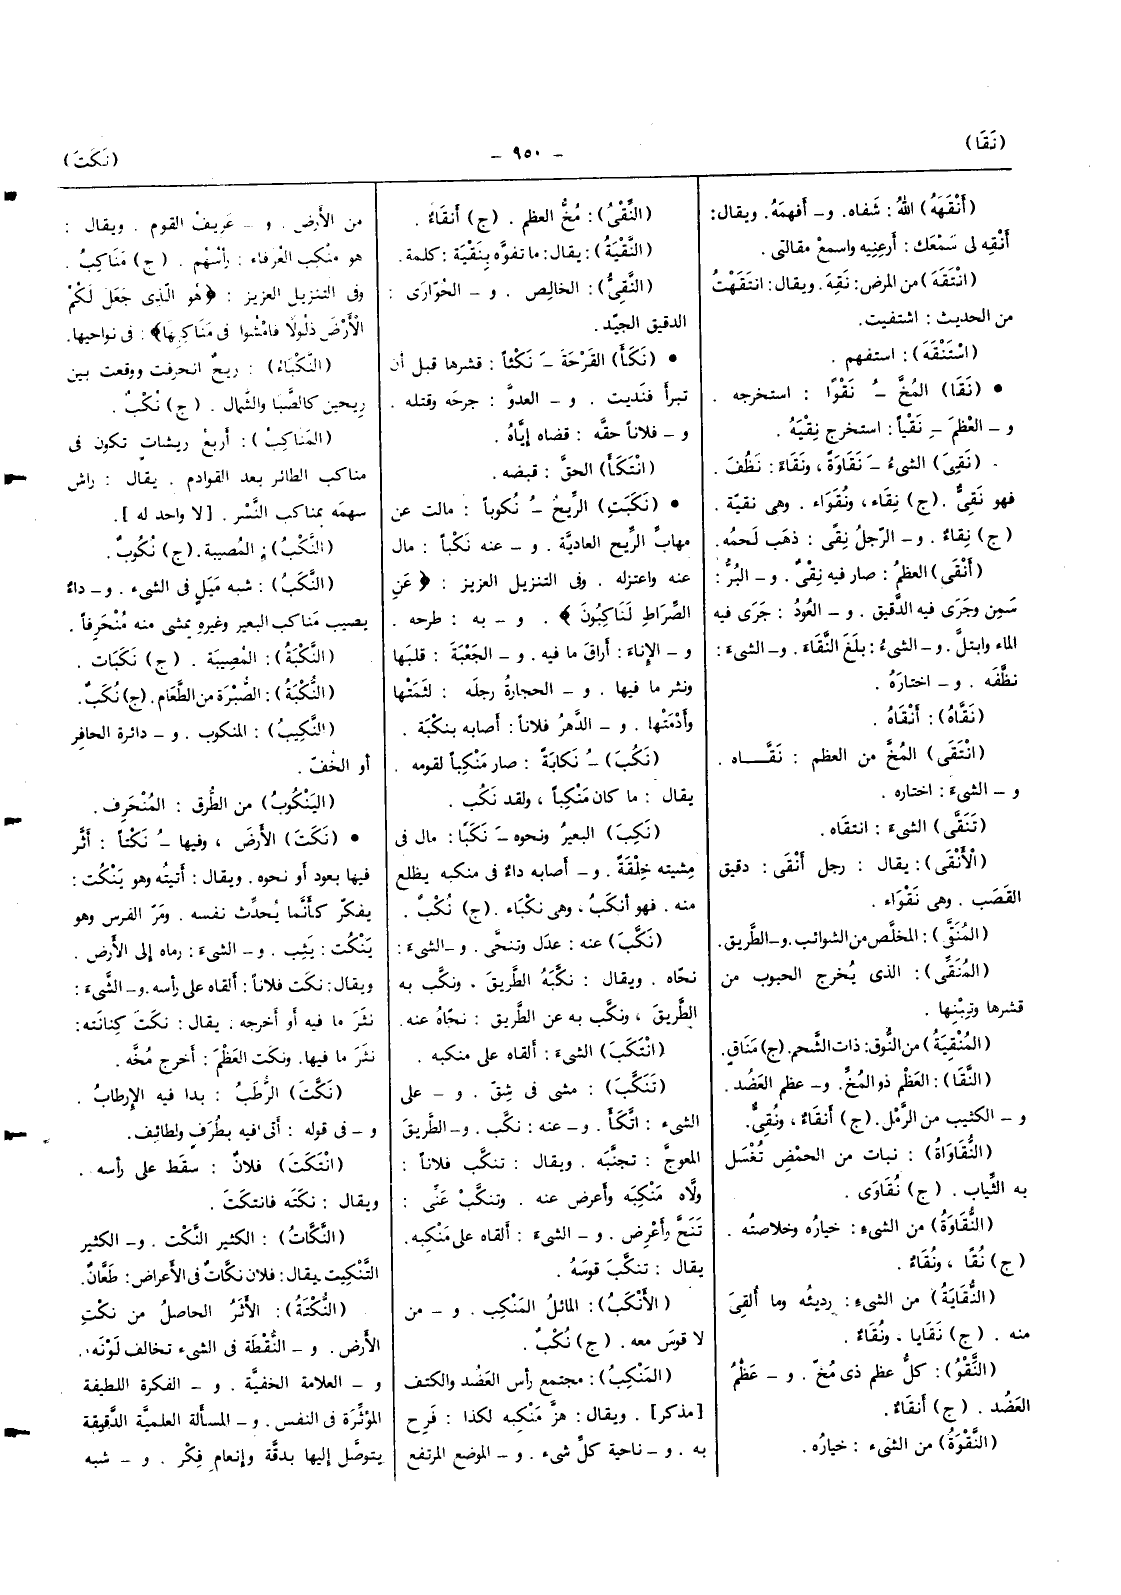 (نَقَا)
— ٩٥٠ —
(نَكَتَ)
(أَنْقَهَهُ) اللهُ : شَفاه. و– أفهمَهُ. ويقال:
أَنْقِه لى سَمْعَك : أَرعِنيه واسمعْ مقالتى.
(انْتَقَهَ) من المرض: نَقِهَ. ويقال: انتقَهْتُ
من الحديث : اشتفيت.
(اسْتَنْقَهَ) : استفهم .
• (نَقَا) المُخَّ –ُ نَقْوًا : استخرجه .
و– العَظْمَ –ِ نَقْياً: استخرج نِقْيَهُ .
. (نَقِىَ) الشىءُ –َ نَقَاوَةً ، ونَقَاءً : نَظُفَ .
فهو نَقِىٌّ .(ج) نِقَاء، ونُقَوَاء . وهى نقيّة .
(ج) نِقاءٌ . و– الرّجلُ نِقًى : ذهَب لَحمُه.
(أَنْقَى) العظمُ : صار فيه نِقْىٌ . و– البُرُّ :
سَمِن وجَرَى فيه الدَّقيق . و– العُودُ : جَرَى فيه
الماء وابتلَّ . و– الشىءُ : بلَغَ النَّقَاء . و– الشىءَ :
نظَّفَه . و– اختارَهُ .
(نَقَّاهُ) : أَنْقَاهُ .
(انْتَقَى) المُخَّ من العظم : نَقَّـــاه .
و– الشىءَ : اختاره .
(تَنَقَّى) الشىءَ : انتقَاه.
(الْأَنْقَى) : يقال : رجل أَنْقَى : دقيق
القَصَب . وهى نَقْوَاء .
(المُنَقَّى) : المخلَّص من الشوائب. و– الطَّريق.
(المُنَقِّى) : الذى يُخرج الحبوب من
قشرها وتِبْنِها .
(المُنْقِيَةُ) من النُّوق: ذات الشَّحم.(ج) مَنَاقٍ.
(النَّقَا) : العَظْم ذو المُخِّ. و– عظم العَضُد .
و– الكثيب من الرَّمْل. (ج) أَنقَاءٌ ، ونُقِىٌّ.
(النُّقَاوَاةُ) : نبات من الحمْضِ تُغْسَل
به الثِّياب . (ج) نُقَاوَى .
(النُّقَاوَةُ) من الشىءِ : خيارُه وخلاصتُه .
(ج) نُقًا ، ونُقَاءٌ .
(النُّقَايَةُ) من الشىءِ : رديئُه وما أُلقِىَ
منه . (ج) نَقَايا ، ونُقَاءٌ .
(النِّقْوُ) : كلُّ عظم ذى مُخّ . و– عَظْمُ
العَضُد . (ج) أَنقَاءٌ .
(النَّقْوَةُ) من الشىء : خيارُه .
(النِّقْىُ) : مُخُّ العظم . (ج) أَنقَاءٌ .
(النَّقْيَةُ) : يقال : ما تفوَّه بِنَقْيَة : كلمة .
(النَّقِىُّ) : الخالِص . و– الحُوّارَى :
الدقيق الجيِّد.
• (نَكَأَ) القَرْحَةَ –َ نَكْئاً : قشرها قبل أن
تبرأ فنَدِيت . و– العدوَّ : جرحَه وقتله .
و– فلاناً حقَّه : قضاه إيَّاهُ .
(انْتَكَأَ) الحقَّ : قبضه.
• (نَكَبَتِ) الرِّيحُ –ُ نُكوباً : مالت عن
مهابِّ الرِّيح العاديَّة . و– عنه نَكْباً : مال
عنه واعتزله . وفى التنزيل العزيز : ﴿ عَنِ
الصِّرَاطِ لَنَاكِبُونَ ﴾ . و– به : طرحه .
و– الإناءَ : أراقَ ما فيه . و– الجَعْبَةَ : قلبَها
ونثر ما فيها . و– الحجارةُ رجلَه : لثَمَتْها
وأَدْمَتْها . و– الدَّهرُ فلاناً : أصابه بنكْبَة .
(نَكُبَ) –ُ نَكابَةً : صار مَنْكِباً لقومه .
يقال : ما كان مَنْكِباً ، ولقد نَكُب .
(نَكِبَ) البعيرُ ونحوه –َ نَكَبًا : مال فى
مِشيته خِلْقَةً . و– أصابه داءٌ فى منكبه يظلع
منه . فهو أنكَبُ ، وهى نكْبَاء .(ج) نُكْبٌ .
(نَكَّبَ) عنه : عدَل وتنحَّى . و– الشىءَ :
نحّاه . ويقال : نكَّبَهُ الطَّريقَ . ونكَّب به
الطَّريقَ ، ونكَّب به عن الطَّريق : نحّاهُ عنه.
(انْتَكَبَ) الشىءَ : ألقاه على منكبه .
(تَنَكَّبَ) : مشى فى شِقّ . و– على
الشىء : اتَّكأَ . و– عنه : نكَّب . و– الطَّريقَ
المعوجَّ : تجنَّبه . ويقال : تنكَّب فلاناً :
ولَّاه مَنْكِبَه وأعرض عنه . وتنكَّبْ عَنِّى :
تَنَحَّ وأَعْرِض . و– الشىءَ : ألقاه على مَنْكِبِه.
يقال : تنكَّبَ قوسَهُ .
(الأَنْكَبُ) : المائلُ المَنْكِب . و– من
لا قوسَ معه . (ج) نُكْبٌ .
(المَنْكِبُ) : مجتمع رأس العَضُد والكتف
[مذكر] . ويقال : هزَّ مَنْكِبه لكذا : فَرِح
به . و– ناحية كلِّ شىء . و– الموضع المرتفع
من الأَرض . و– عَرِيفُ القوم . ويقال :
هو منكِب العُرفاء : رأسُهم . (ج) مَنَاكِبُ .
وفى التنزيل العزيز : ﴿هُوَ الَّذِى جَعَلَ لَكُمُ
الْأَرْضَ ذَلُولًا فَامْشُوا فِى مَنَاكِبِهَا﴾ : فى نواحيها.
(النَّكْبَاءُ) : ريحٌ انحرفت ووقعت بين
رِيحين كالصَّبا والشَّمال . (ج) نُكْبٌ .
(المَنَاكِبُ) : أربعُ ريشاتٍ تكون فى
مناكب الطائر بعد القوادم . يقال : راش
سهمَه بمناكب النَّسْر . [لا واحد له ].
(النَّكْبُ) : المُصيبة. (ج) نُكُوبٌ.
(النَّكَبُ) : شبه مَيَلٍ فى الشىء . و– داءٌ
يصيب مَناكب البعير وغيرِه يمشى منه مُنْحَرِفاً .
(النَّكْبَةُ) : المُصِيبَة . (ج) نَكَبَات .
(النُّكْبَةُ) : الصُّبْرَة من الطَّعَام. (ج) نُكَبٌ.
(النَّكِيبُ) : المنكوب . و– دائرة الحافِر
أو الخُفّ .
(اليَنْكُوبُ) من الطُّرق : المُنْحَرِف .
• (نَكَتَ) الأَرضَ ، وفيها –ُ نَكْتاً : أَثَّر
فيها بعود أو نحوه . ويقال : أتيتُه وهو يَنْكُت :
يفكّر كأَنَّما يُحدِّث نفسه . ومَرّ الفرس وهو
يَنْكُت : يَثِب . و– الشىءَ : رماه إلى الأَرض .
ويقال : نكَت فلاناً : ألقاه على رأسه. و– الشَّىءَ :
نثَرَ ما فيه أو أخرجه . يقال : نكَتَ كِنانَته:
نثَرَ ما فيها. ونكَت العَظْمَ : أخرج مُخَّه .
(نَكَّتَ) الرُّطَبُ : بدا فيه الإِرطابُ .
و– فى قوله : أتى فيه بطُرَفٍ ولطائِف.
(انْتَكَتَ) فلانٌ : سقَط على رأسه .
ويقال : نكتَه فانتكَتَ .
(النَّكَّاتُ) : الكثير النَّكْت . و– الكثير
التَّنكِيت. يقال: فلان نكَّاتٌ فى الأعراض: طَعَّانٌ.
(النُّكْتَةُ) : الأَثَرُ الحاصلُ من نكْتِ
الأَرض. و– النُّقْطَة فى الشىء تخالف لَوْنَه.
و– العلامة الخفيَّة . و– الفكرة اللطيفة
المؤثِّرَة فى النفس. و– المسألة العلميَّة الدَّقيقة
يتوصَّل إليها بدقَّة وإنعامِ فِكْر . و– شبه